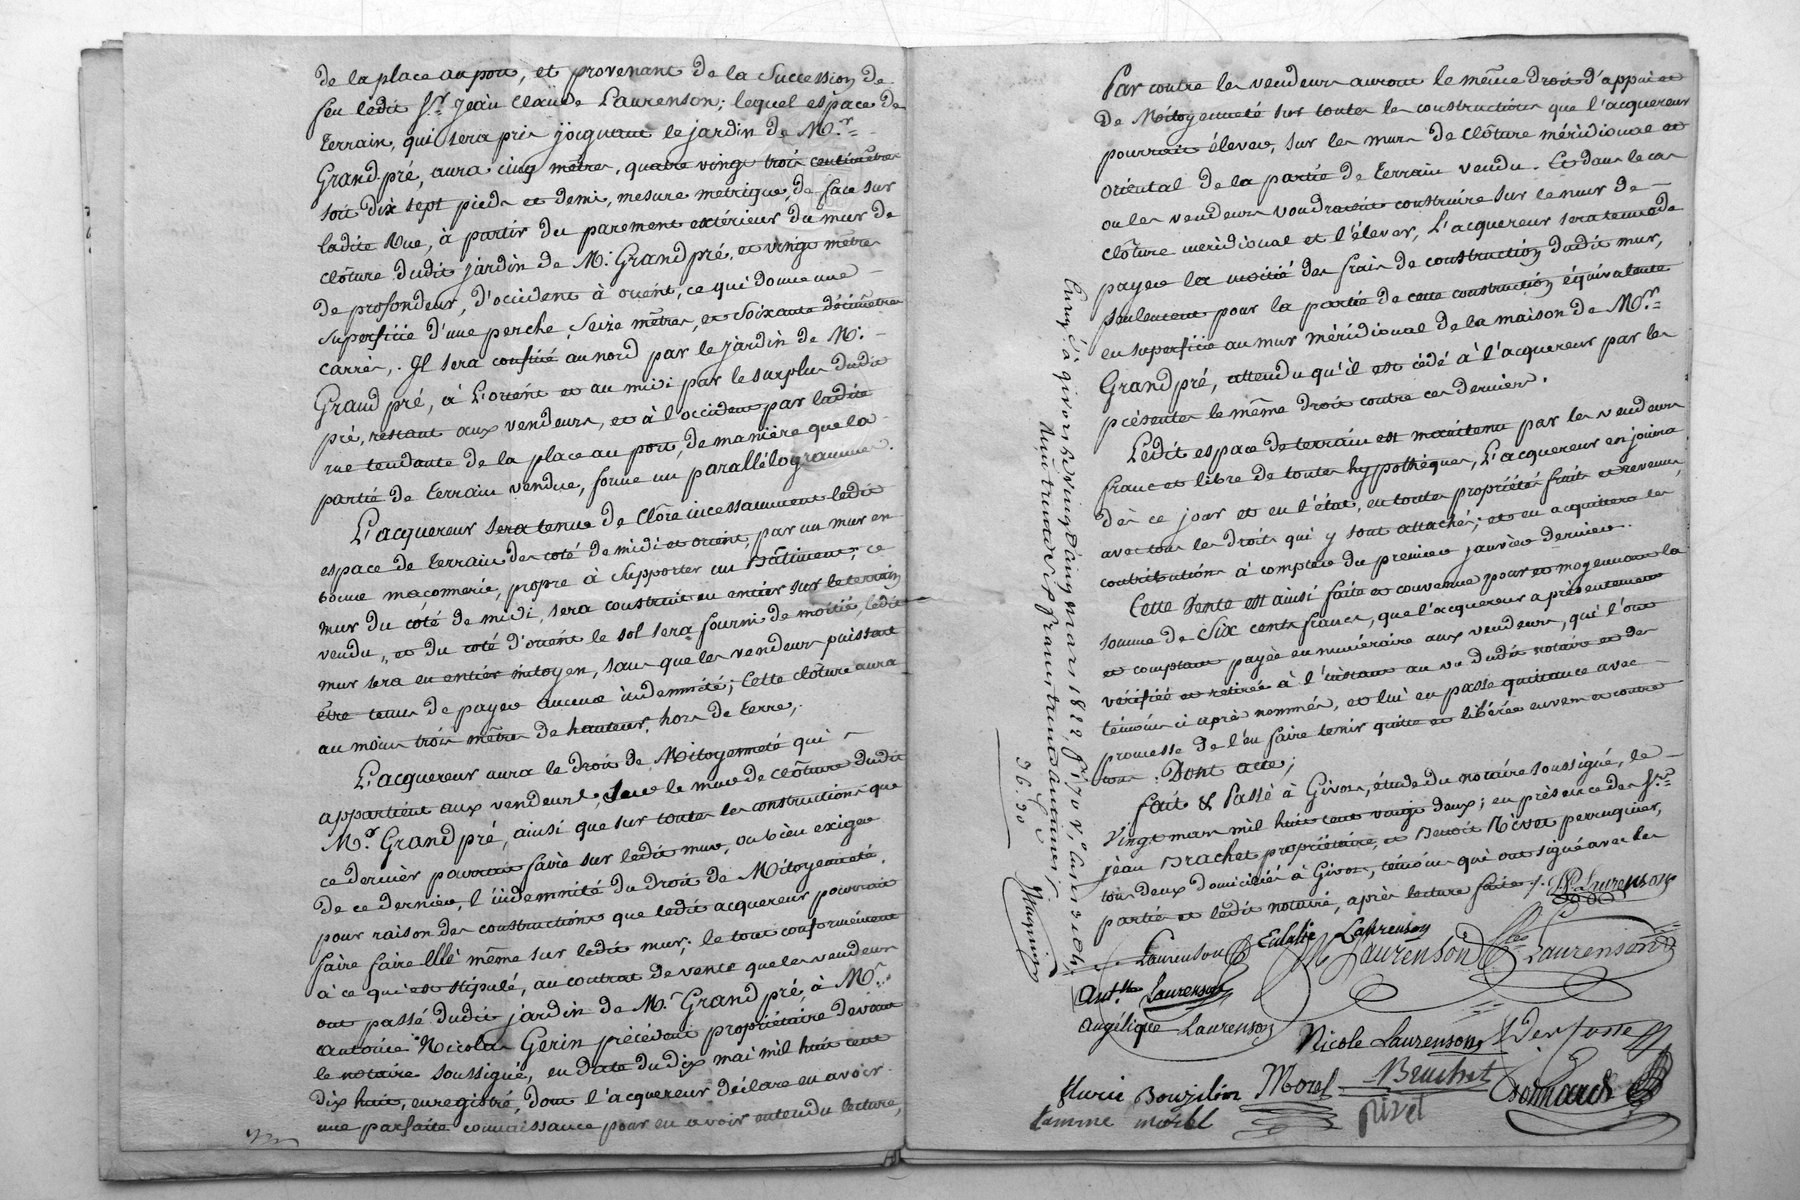 de la place au port, et provenant de la Succession de
feu ledit Sr. jean Claude Laurenson; lequel espace de
terrain, qui sera pris joignant le jardin de Mr.
Grand pré, aura cinq mètres, quatre vingt trois centimètres
soit dix sept pieds et demi, mesure metrique, de face sur
ladite Rue, à partir du parement extérieur du mur de
clôture dudit jardin de M. Grand pré, et vingt mètres
de profondeur, d'occident à orient, ce qui donne une
superficie d'une perche, Seize mètres, et Soixante décimètres
carrés,. Il sera confiné au nord par le jardin de M.
Grand pré, à l'orient et au midi par le surplus dudit
pré, restant aux vendeurs, et à l'occident par ladite
rue tendante de la place au port, de manière que la
partie de terrain vendue, forme un parallélogramme.
L'acquereur sera tenu de clôre incessamment ledit
espace de terrain des coté de midi et orient, par un mur en
bonne maçonnerie, propre à supporter un bâtiment; ce
mur du coté de midi, sera construit en entier sur le terrain
vendu, et du coté d'orient le sol sera fourni de moitié, ledit
mur sera en entier mitoyen, sans que les vendeurs puissent
être tenus de payer aucune indemnité; Cette clôture aura
au moins trois mètres de hauteur, hors de terre,.
L'acquereur aura le droit de Mitoyenneté qui
appartient aux vendeurs, Sur le mur de clôture dudit
Mr. Grand pré, ainsi que sur toutes les constructions que
ce dernier pourrait faire sur ledit mur, ou bien exiger
de ce dernier, l'indemnité du Droit de Mitoyenneté,
pour raison des constructions que ledit acquereur pourrait
faire faire lui même sur ledit mur; le tout conformément
à ce qui est stipulé, au contrat de vente que les vendeurs
ont passé dudit jardin de M. Grand pré, à M.
antoine Nicolas Gerin précédent propriétaire devant
le notaire soussigné, en date du dix mai mil huit cent
dix huit, enregistré, dont l'acquereur déclare en avoir
une parfaite connaissance pour en avoir entendu lecture,
Par contre les vendeurs auront le même droit d'appui et
de Mitoyenneté sur toutes les constructions que l'acquereur
pourrait élever, sur les murs de clôture méridional et
oriental de la partie de terrain vendu. Et dans le cas
ou les vendeurs voudraient construire sur le mur de
clôture méridional et l'élever, l'acquereur sera tenu de
payer la moitié des frais de construction dudit mur,
seulement pour la partie de cette construction équivalente
en superficie au mur méridional de la maison de Mr.
Grand pré, attendu qu'il est cédé à l'acquereur par les
présentes le même droit contre ces derniers.
Ledit espace de terrain est maintenu par les vendeurs
franc et libre de toutes hypothèques, L'acquereur en jouira
dès ce jour et en l'état, en toute propriété fruits et revenus,
avec tous les droits qui y sont attachés; et en acquitera les
contributions à compter du premier janvier dernier.
Cette Vente est ainsi faite et convenue pour et moyennant la
somme de Six cents francs, que l'acquereur a présentement
et comptant payée en numéraire aux vendeurs, qui l'ont
vérifiée et retirée à l'instant au vu dudit notaire et des
témoins ci après nommés, et lui en passe quittance avec
promesse de l'en faire tenir quitte et libérée envers et contre
tous. Dont acte;
Fait & Passé à Givors, étude du notaire soussigné, le
Vingt mars mil huit cent vingt deux; en présence des Srs.
jean Brachet propriétaire, et Benoit Rivet perruquier,
tous deux domiciliés à Givors, témoins qui ont signé avec les
parties et ledit notaire, après lecture faite./.
Laurenson
Laurenson
Eulalie Laurenson
Laurenson
Laurenson
Antte Laurenson
Angélique Laurenson
Nicole Laurenson
Fleurie Bouzilon
femme morel
Morel
Brachet
Rivet
Bonnard
Enreg. à givors le vingt cinq mars 1822
trente six francs trente centimes;
36.30